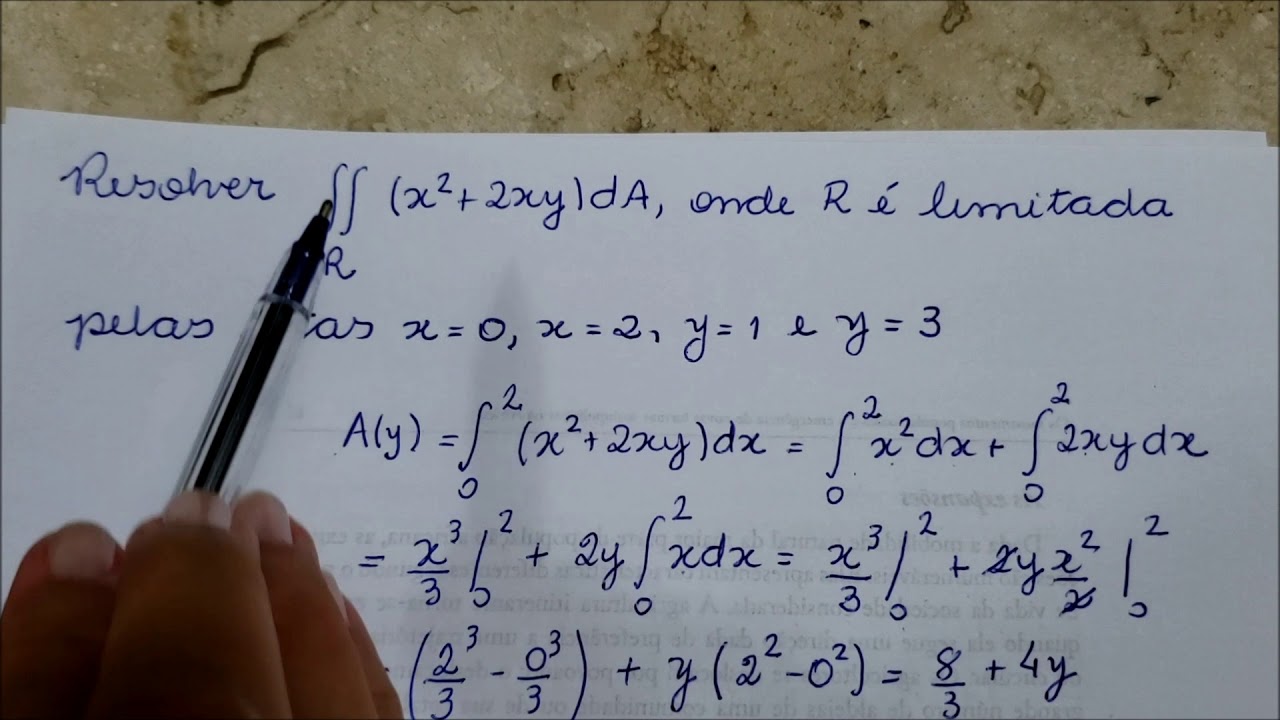 Resolver ∬ (x² + 2xy) dA, onde R é limitada
R
pelas x = 0, x = 2, y = 1 e y = 3
A(y) = ∫₀² (x² + 2xy) dx = ∫₀² x² dx + ∫₀² 2xy dx
= x³/3 |₀² + 2y ∫₀² x dx = x³/3 |₀² + 2y x²/2 |₀²
(2³/3 - 0³/3) + y (2² - 0²) = 8/3 + 4y